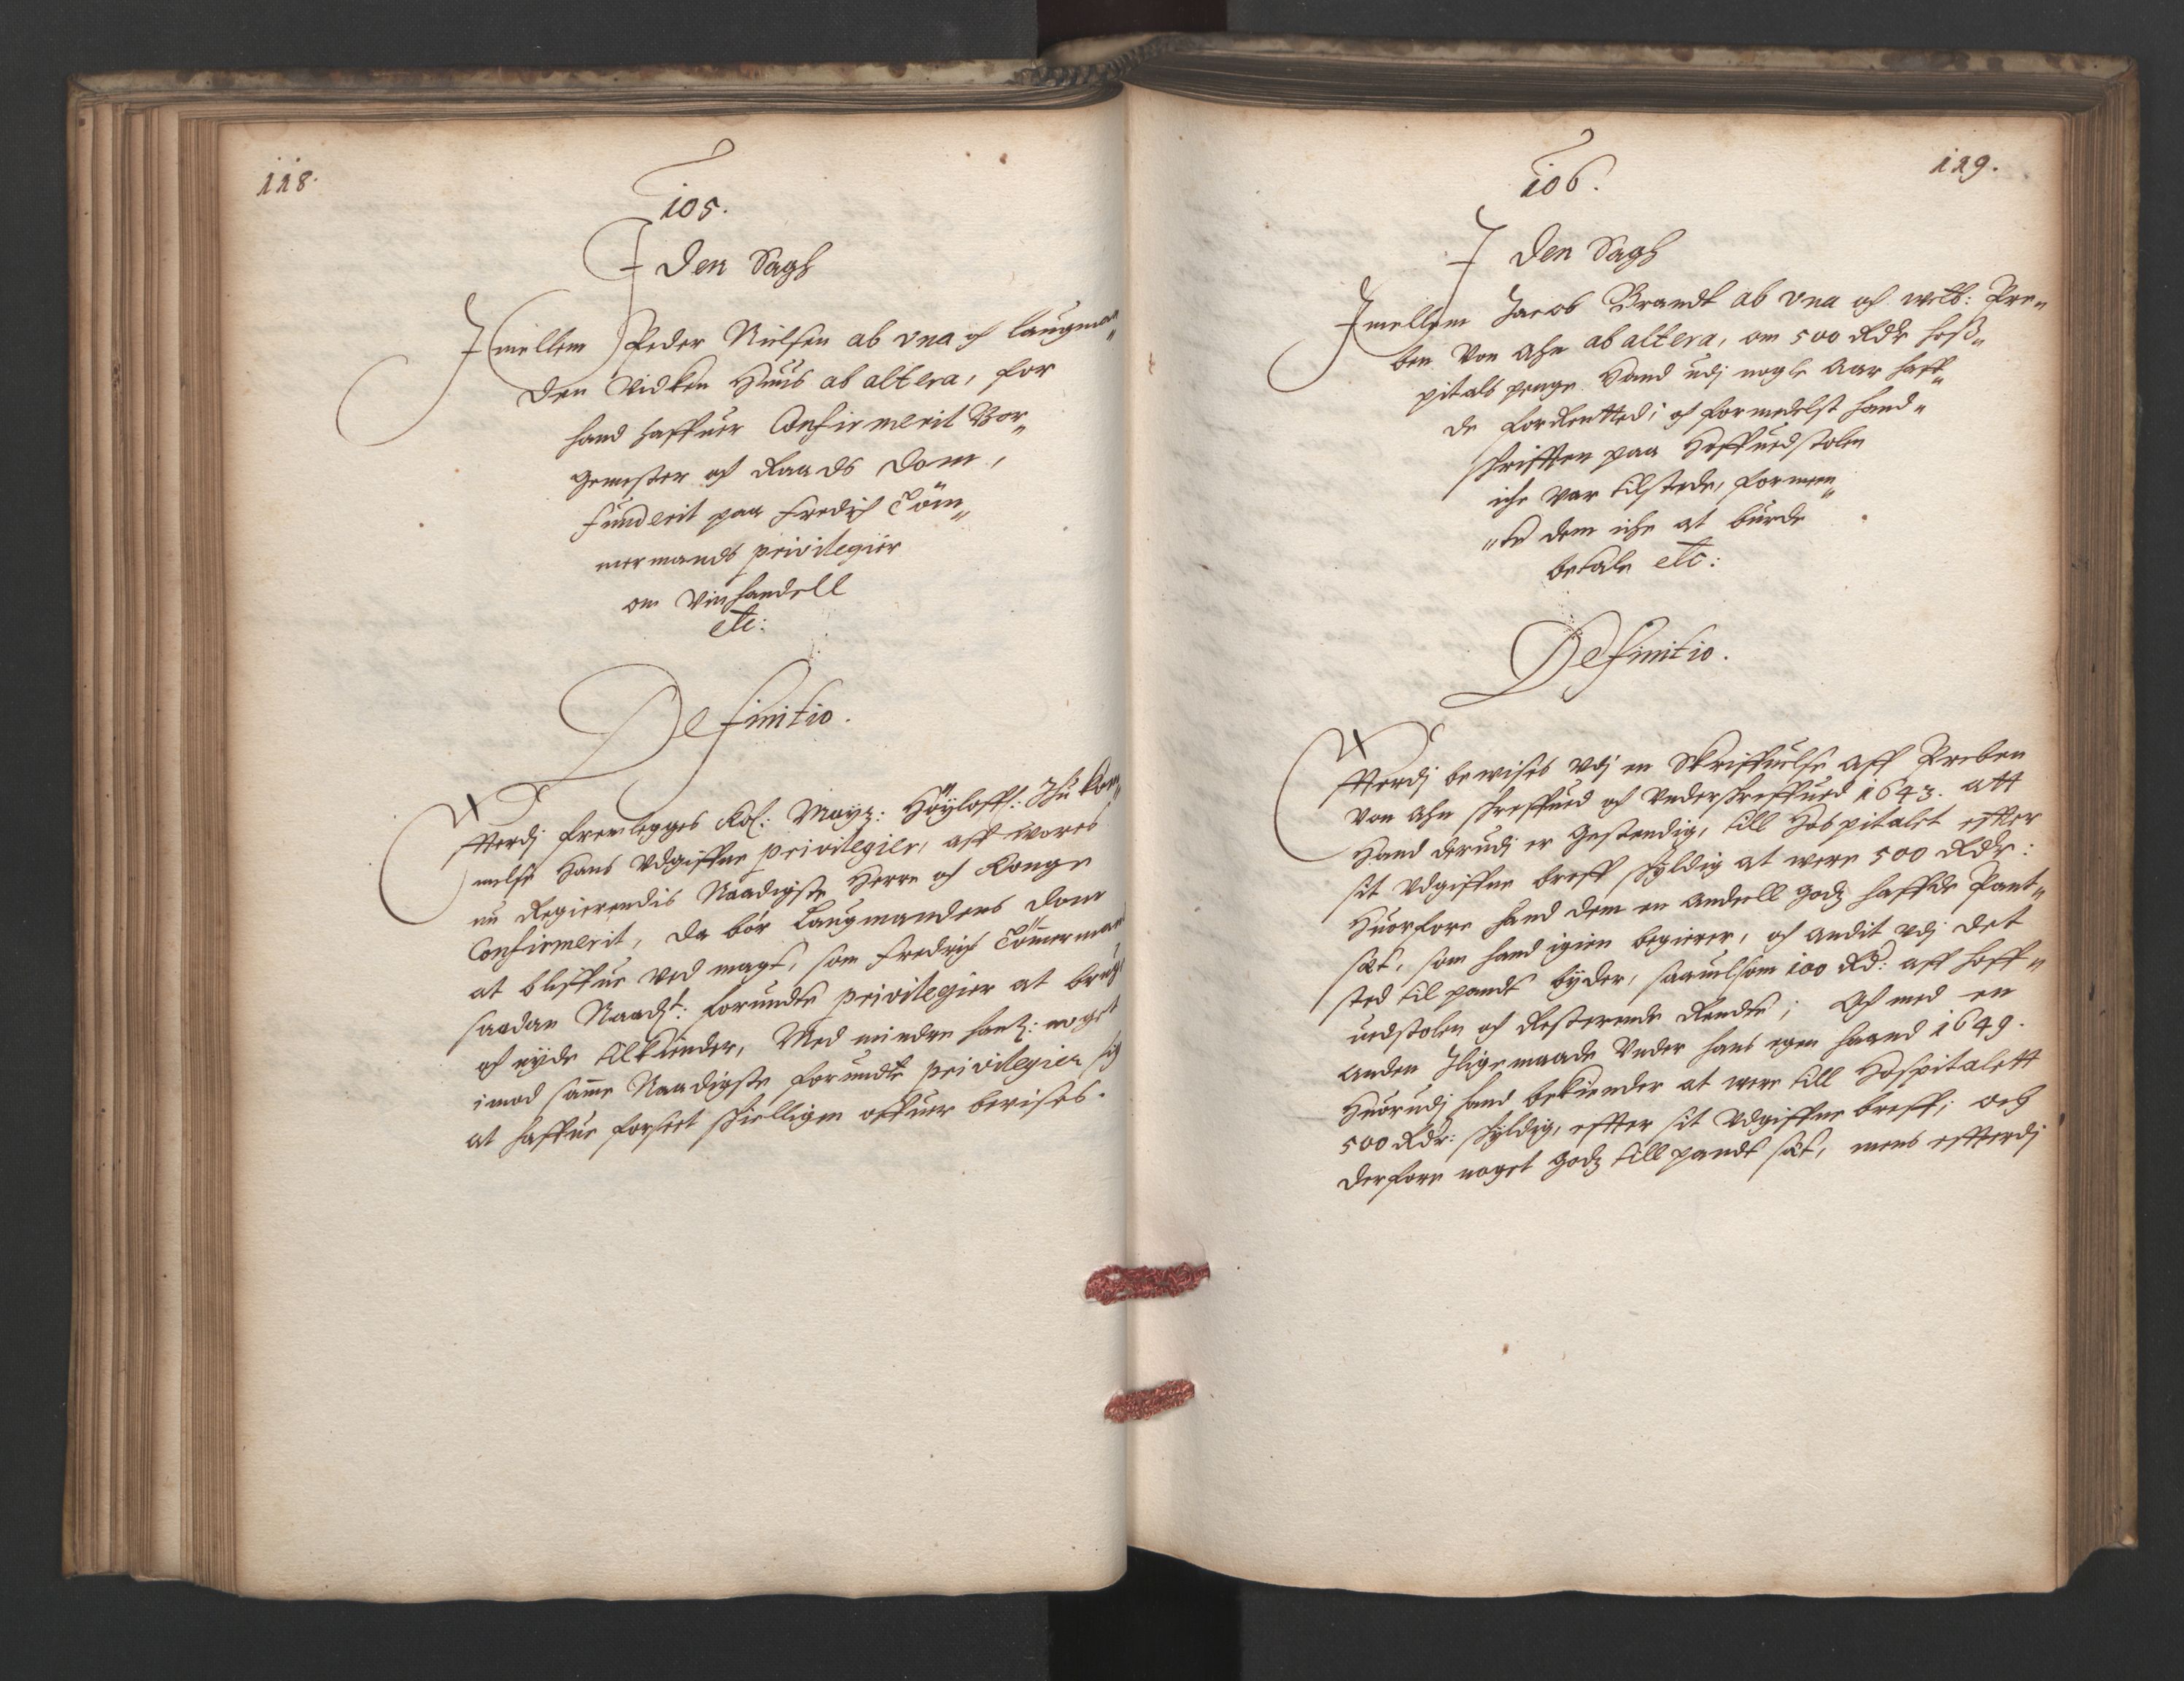 118.
105.
I den Sagh
Imellem Peder Nielsen ab una og laugman„
den Vidken Huus ab altera, for
hand haffuer Confirmerit Bor„
gemester og Raads dom,
funderit paa Fredrich Töm„
mermands privilegier
om Vinhandell
etc:
Definitio.
Efterdj fremlegges Kol: Mayz: Höyloffl: Ihukom„
melse Hans Udgiffne privilegier, aff wores
nu Regierendis Naadigste Herre og Konge
Confirmerit, da bör Laugmandens dom
at bliffue ved magt, som Fredrich Tömmermand
saadan Naadgt: forundte privilegier at bruge
og nyde tilkiender, Med mindre hand: noget
imod samme Naadigste forundte privilegier sig
at haffue forseet skielligen offuer bevises.
119.
106.
I den Sagh
Imellem Jacob Brandt ab una og welb: Pre„
ben Von Ahn ab altera, om 500 Rdr hoß„
pitals penge Hand udj nogle Aar haff„
de forRentted; og formedelst hand„
skrifften paa Hoffuedstolen
iche var tilstede, formeen„
„te dem iche at burde
betale etc:
Definitio.
Efterdj bewises udj en Skriffuelse aff Preben
Von Ahn skreffued og Underskreffued 1643. att
Hand derudj er Gestendig, till Hospitalet effter
sit Udgiffne breff skyldig at were 500 Rdr:
Huorfore hand dem en andeell Godz haffde Pant„
sat, som hand igien begierer, og andit udj det
sted til pandt byder, saauelsom 100 Rd: aff hoff„
uedstolen og Resterende Rendte; Och med en
anden Jligemaade Under hans egen haand 1649.
Huorudj hand bekiender at were till Hospitalett
500 Rdr: skyldig, effter sit Udgiffne breff; och
derfore noget Godz till pandt sat, mens effterdj